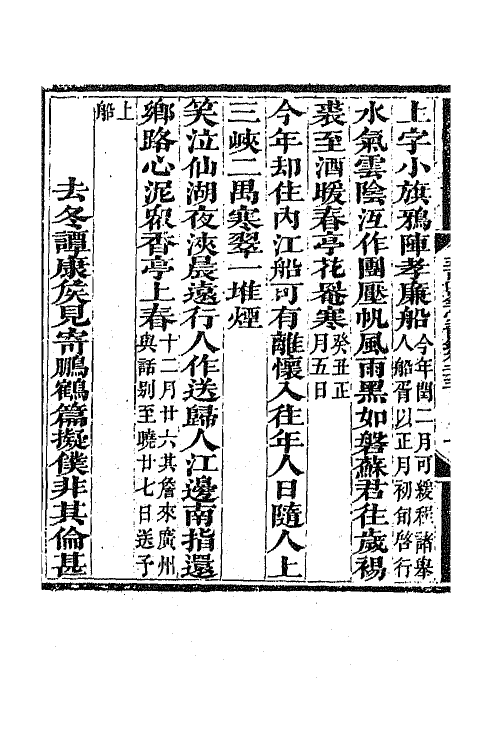 上字小旗鴉陣孝廉船今年閏二月可緩程諸舉人船胥以正月初旬啓行
水氣雲陰沍作團壓帆風雨黑如磐蘇君往歲裼
裘至酒暖春亭花罨寒癸丑正月五日
今年却住內江船可有離懷入往年人日隨人上
三峽二禺寒翠一堆煙
笑泣仙湖夜浹晨遠行人作送歸人江邊南指還
鄉路心泥𡨚香亭上春十二月廿六其詹來廣州與話别至曉廿七日送子
上船
去冬譚康侯見寄鵬鶴篇擬僕非其倫甚